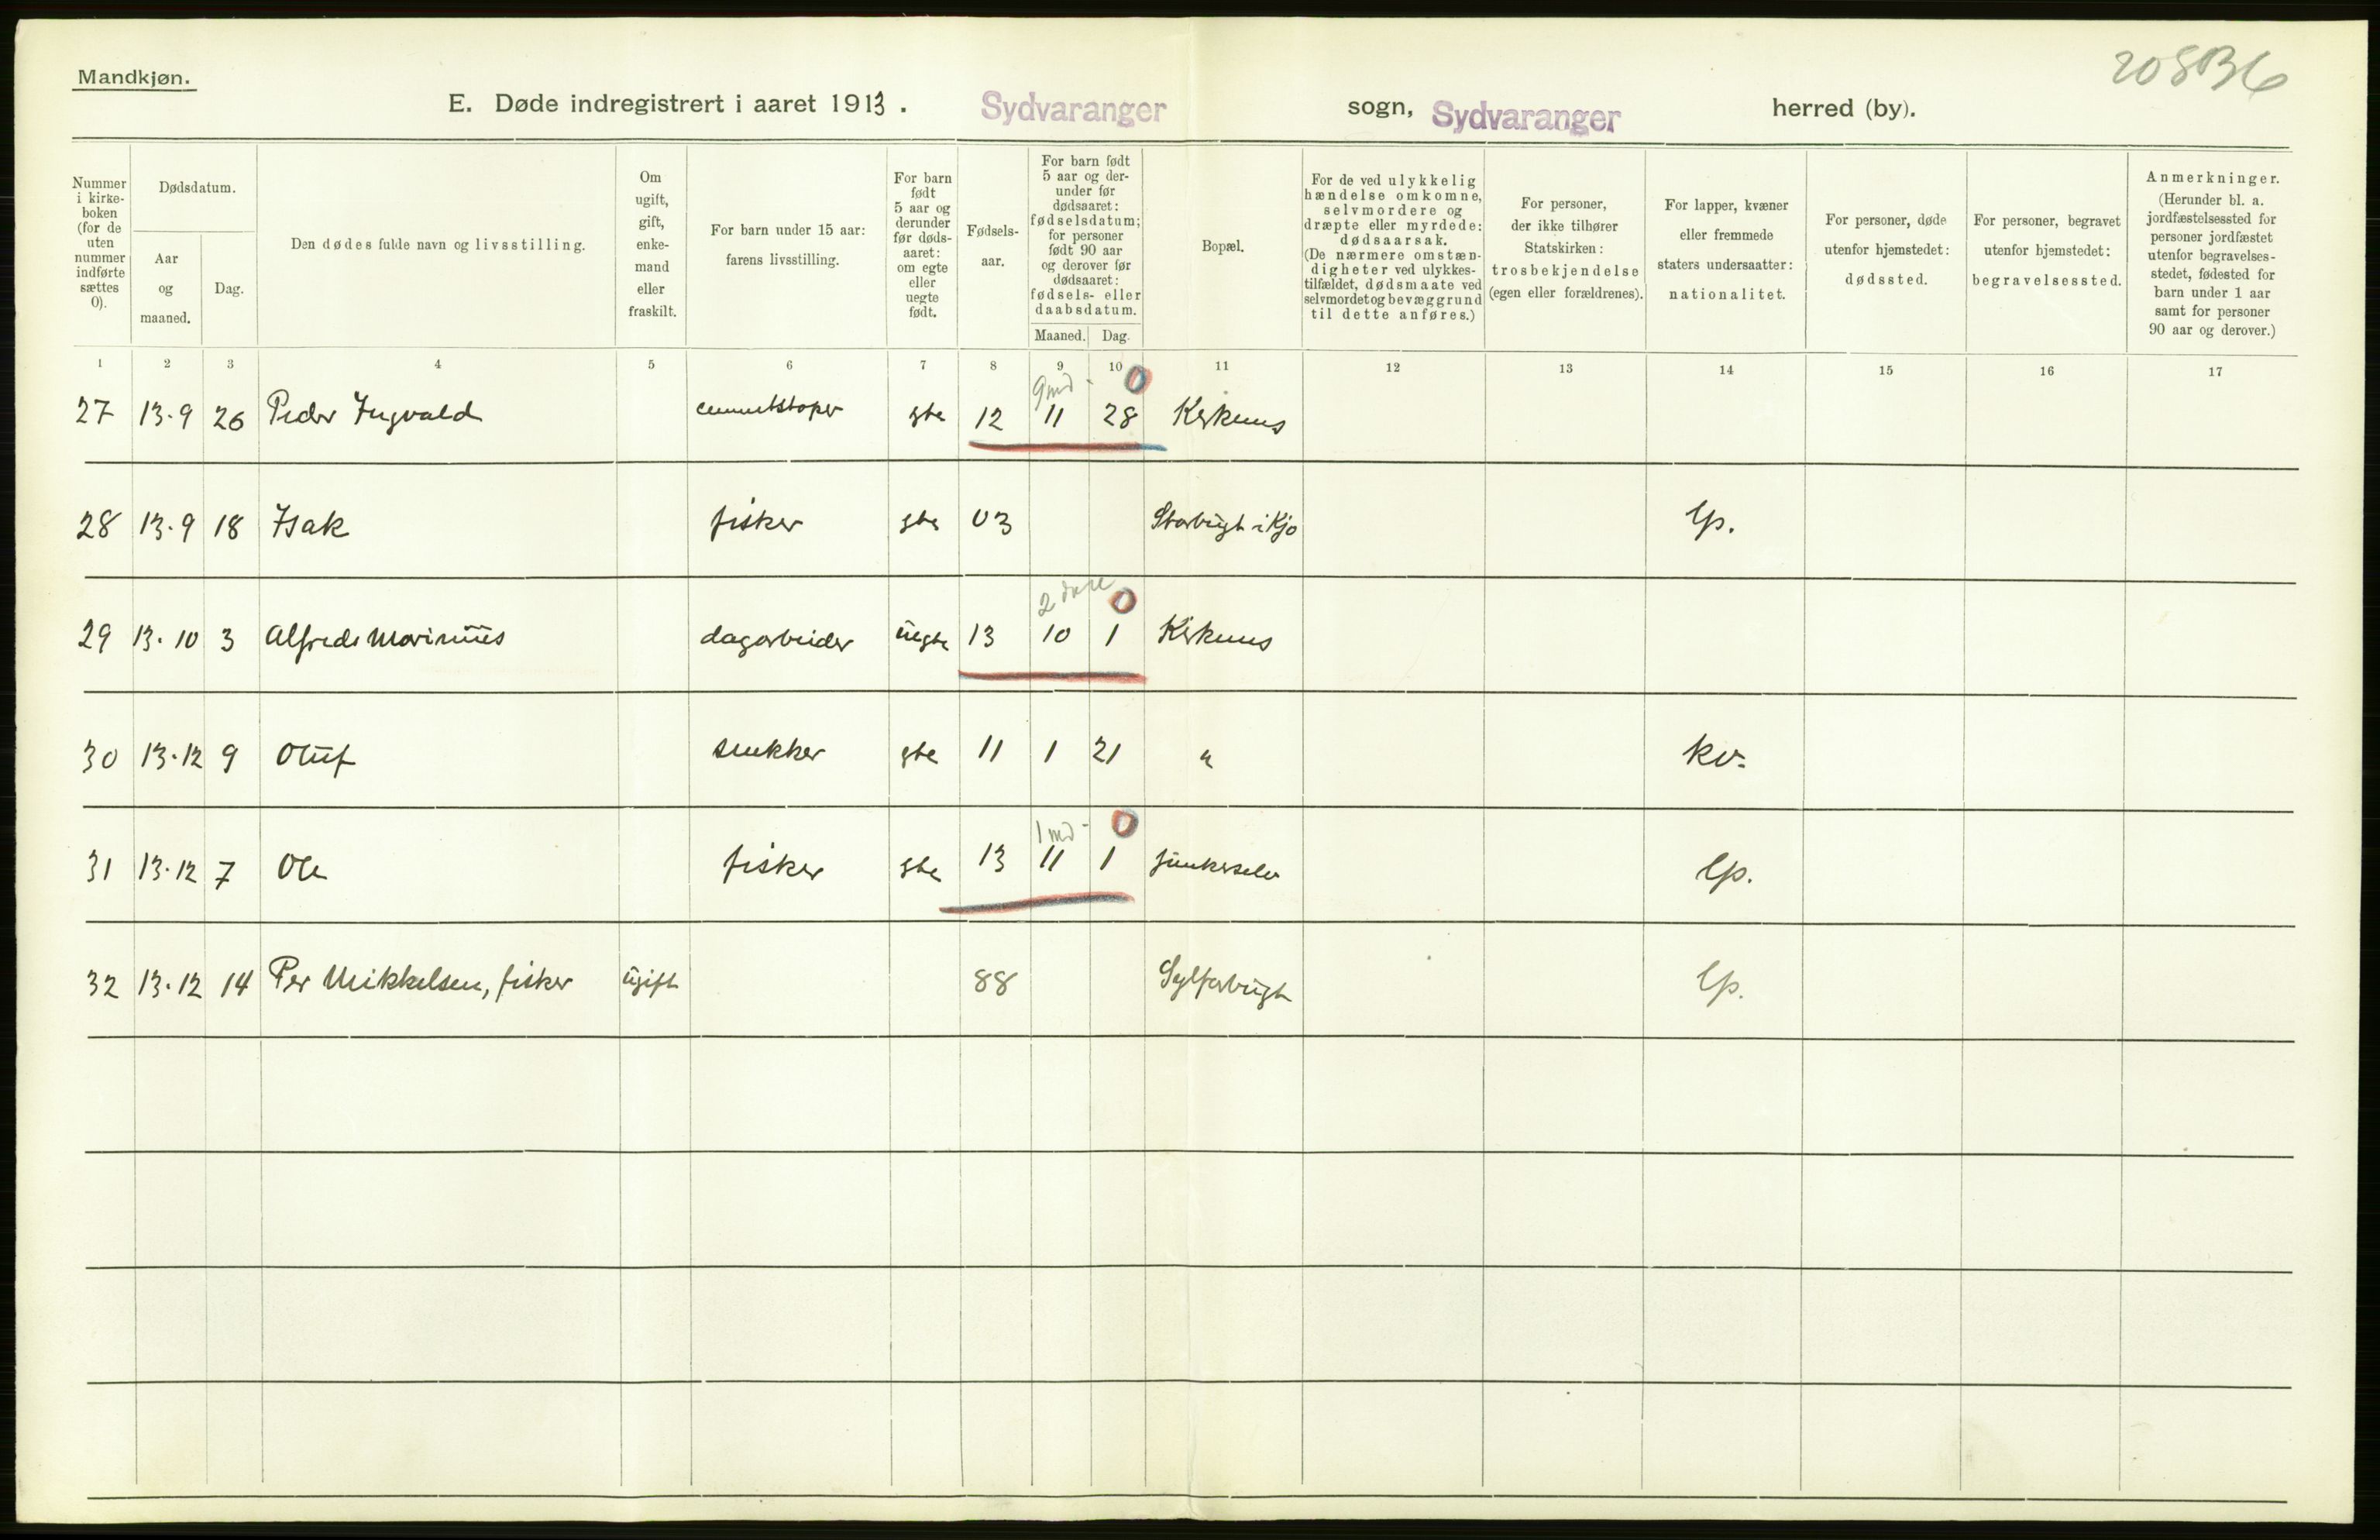 Mandkjøn.
20 8B6
E. Døde indregistrert i aaret 1913. Sydvaranger sogn, Sydvaranger herred (by).
Nummer i kirke-boken (for de uten nummer indførte sættes 0).
Dødsdatum.
Aar og maaned.
Dag.
Den dødes fulde navn og livsstilling.
Om ugift, gift, enke-mand eller fraskilt.
For barn under 15 aar: farens livsstilling.
For barn født 5 aar og derunder før døds-aaret: om egte eller uegte født.
Fødsels-aar.
For barn født 5 aar og der-under før dødsaaret: fødselsdatum; for personer født 90 aar og derover før dødsaaret: fødsels- eller daabsdatum.
Maaned. Dag.
Bopæl.
For de ved ulykkelig hændelse omkomne, selvmordere og dræpte eller myrdede: dødsaarsak. (De nærmere omstæn-digheter ved ulykkes-tilfældet, dødsmaate ved selvmordet og bevæggrund til dette anføres.)
For personer, der ikke tilhører Statskirken: trosbekjendelse (egen eller forældrenes).
For lapper, kvæner eller fremmede staters undersaatter: nationalitet.
For personer, døde utenfor hjemstedet: dødssted.
For personer, begravet utenfor hjemstedet: begravelsessted.
Anmerkninger. (Herunder bl. a. jordfæstelsessted for personer jordfæstet utenfor begravelses-stedet, fødested for barn under 1 aar samt for personer 90 aar og derover.)
1 2 3 4 5 6 7 8 9 10 11 12 13 14 15 16 17
9 md - 0
27 13.9 26 Peder Ingvald cementstøper gte 12 11 28 Kirkenes
28 13.9 18 Isak fisker gte 03 Storbugt i Kjo lp.
2 0
29 13.10 3 Alfred Marinius dagarbeider uegte 13 10 1 Kirkenes
30 13.12 9 Oluf snekker gte 11 1 21 " kv.
1 md - 0
31 13.12 7 Ole fisker gte 13 11 1 Junkerselv lp.
32 13.12 14 Per Mikkelsen, fisker ugift 88 Sylferbugt lp.